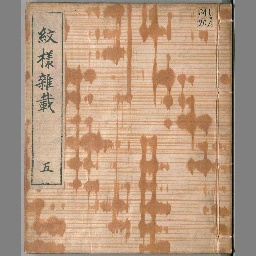 紋様雜載
五